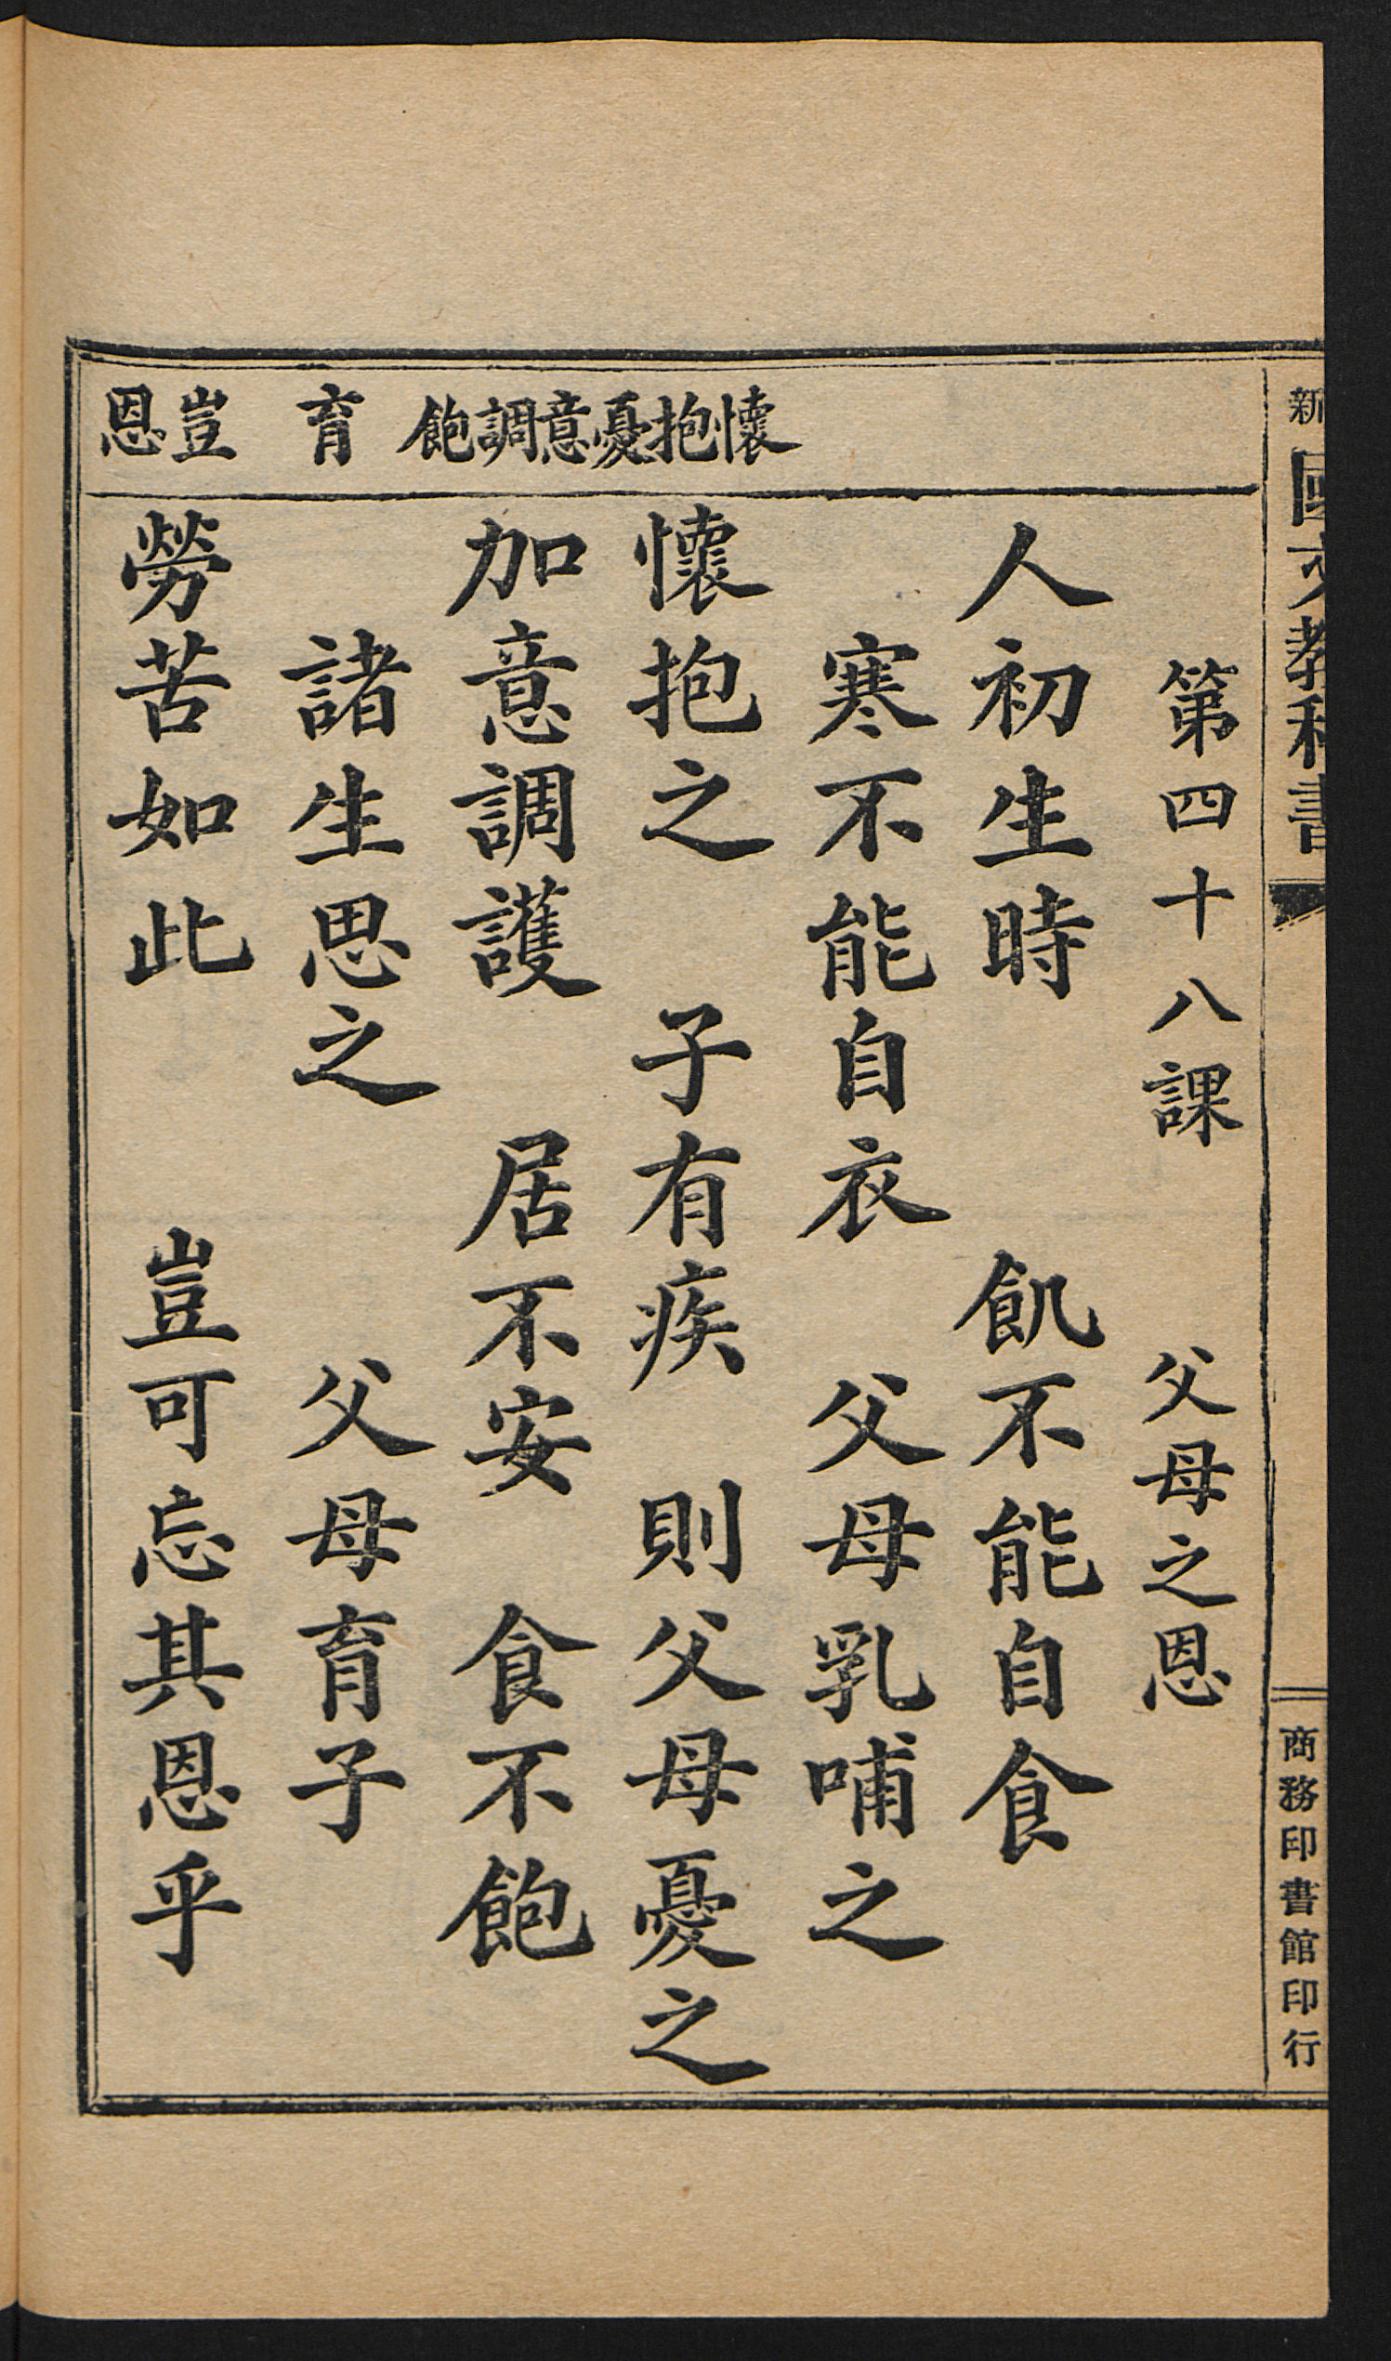 新國文教科書
商務印書館印行
第四十八課 父母之恩
人初生時 飢不能自食
寒不能自衣 父母乳哺之
懷抱之 子有疾 則父母憂之
加意調護 居不安 食不飽
諸生思之 父母育子
勞苦如此 豈可忘其恩乎
懷抱憂意調飽 育 豈恩